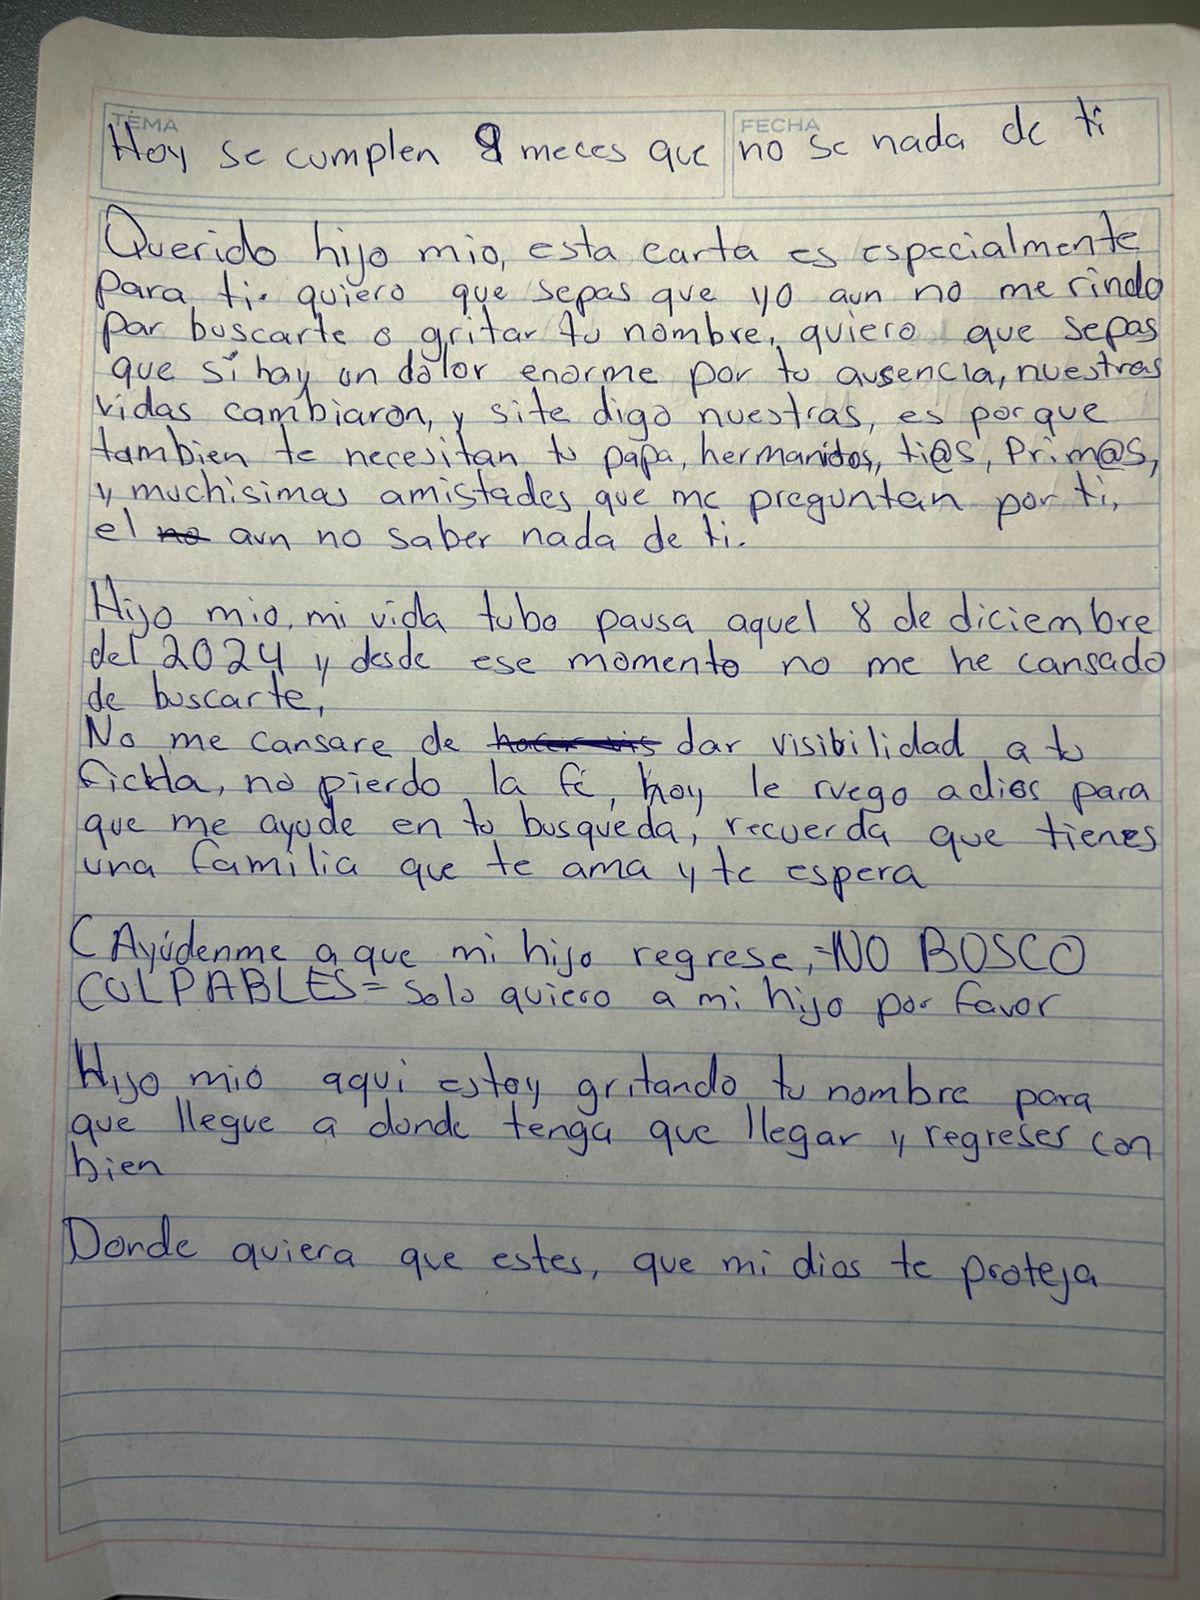 TEMA
FECHA
Hoy se cumplen 9 meces que no se nada de ti
Querido hijo mio, esta carta es especialmente
para ti. quiero que sepas que yo aun no me rindo
por buscarte o gritar tu nombre, quiero que sepas
que si hay un dolor enorme por tu ausencia, nuestras
vidas cambiaron, y si te digo nuestras, es porque
tambien te necesitan tu papa, hermanitos, ti@s, Prim@s,
y muchisimas amistades que me preguntan por ti,
el no aun no saber nada de ti.
Hijo mio, mi vida tubo pausa aquel 8 de diciembre
del 2024 y desde ese momento no me he cansado
de buscarte,
No me cansare de hacer vis dar visibilidad a tu
ficha, no pierdo la fé, hoy le ruego a dios para
que me ayude en tu busqueda, recuerda que tienes
una familia que te ama y te espera
(Ayúdenme a que mi hijo regrese, =NO BUSCO
CULPABLES= solo quiero a mi hijo por favor
Hijo mio aqui estoy gritando tu nombre para
que llegue a donde tenga que llegar y regreses con
bien
Donde quiera que estes, que mi dios te proteja